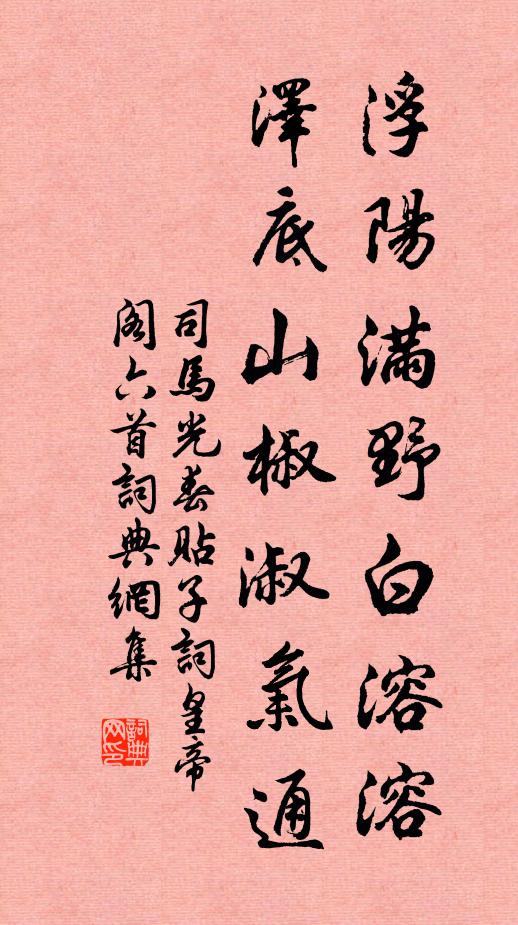 浮陽滿野白溶溶
澤底山椒淑氣通
司馬光春貼子詞皇帝
閣六首詞典網集
詞典網印